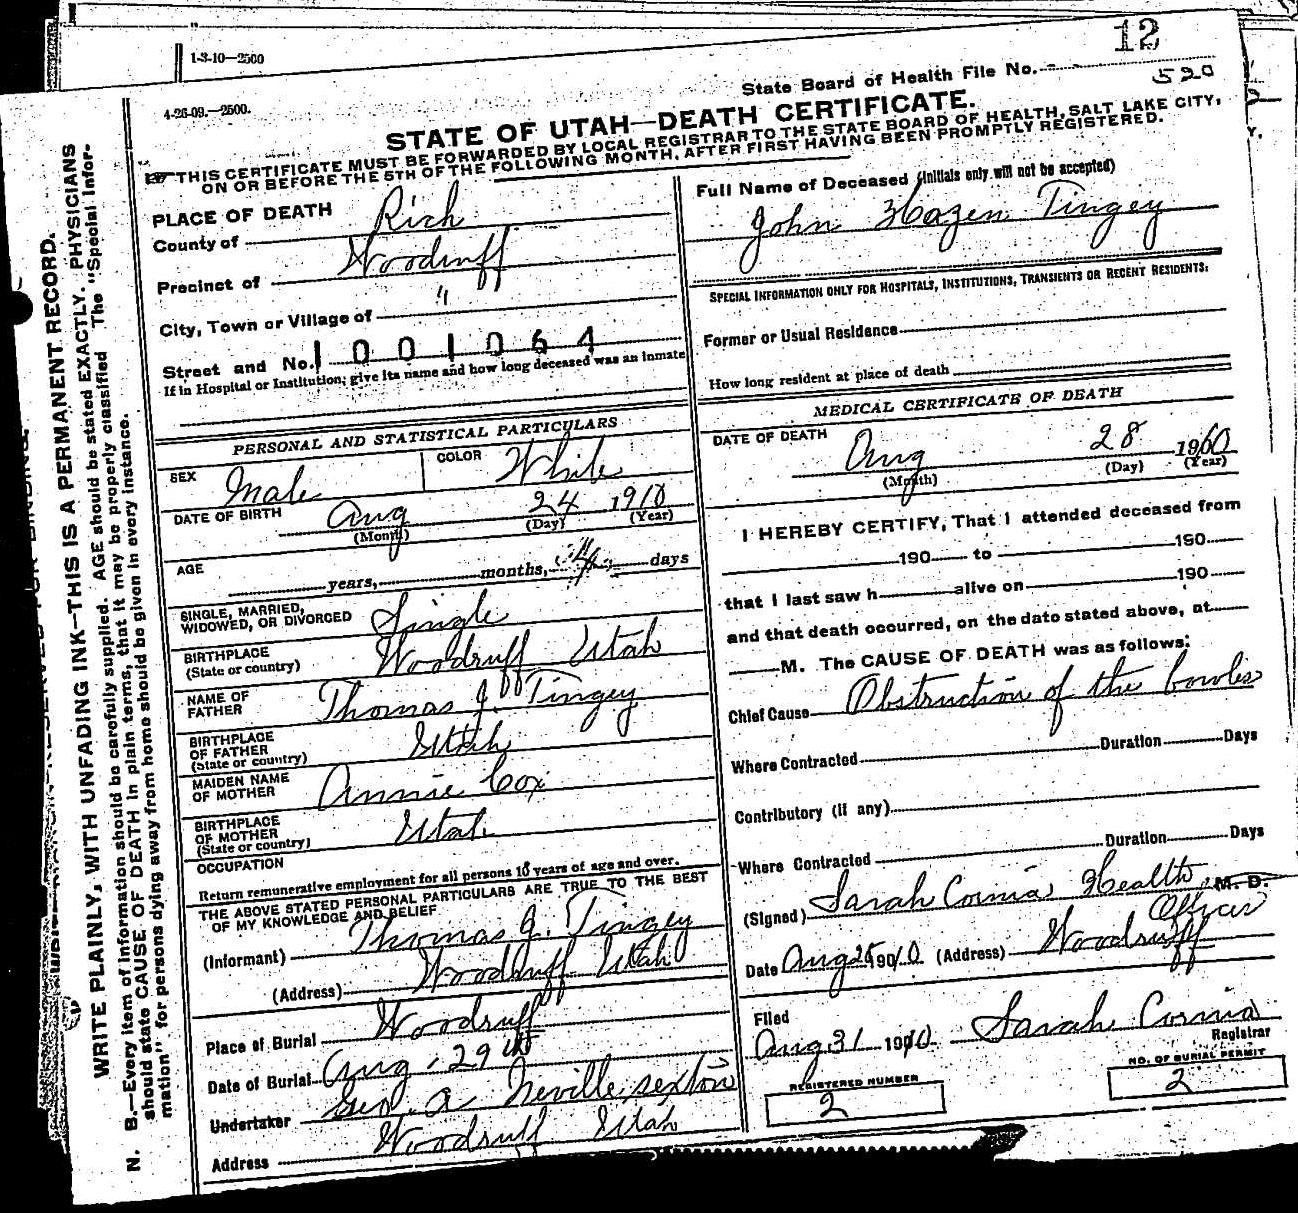 1-3-10—2500
12
4-26-09.—2500.
State Board of Health File No.
520
STATE OF UTAH—DEATH CERTIFICATE.
THIS CERTIFICATE MUST BE FORWARDED BY LOCAL REGISTRAR TO THE STATE BOARD OF HEALTH, SALT LAKE CITY,
ON OR BEFORE THE 5TH OF THE FOLLOWING MONTH, AFTER FIRST HAVING BEEN PROMPTLY REGISTERED.
PLACE OF DEATH
County of Rich
Precinct of Woodruff
City, Town or Village of "
Street and No. 1001064
If in Hospital or Institution; give its name and how long deceased was an inmate
PERSONAL AND STATISTICAL PARTICULARS
SEX Male
COLOR White
DATE OF BIRTH Aug 24 1910
(Month) (Day) (Year)
AGE years, months, 4 days
SINGLE, MARRIED,
WIDOWED, OR DIVORCED Single
BIRTHPLACE
(State or country) Woodruff Utah
NAME OF
FATHER Thomas J. Tingey
BIRTHPLACE
OF FATHER
(State or country) Utah
MAIDEN NAME
OF MOTHER Annie Cox
BIRTHPLACE
OF MOTHER
(State or country) Utah
OCCUPATION
Return remunerative employment for all persons 10 years of age and over.
THE ABOVE STATED PERSONAL PARTICULARS ARE TRUE TO THE BEST
OF MY KNOWLEDGE AND BELIEF
(Informant) Thomas J. Tingey
(Address) Woodruff Utah
Place of Burial Woodruff
Date of Burial Aug. 29th
Undertaker Geo. A Neville, sexton
Address Woodruff Utah
Full Name of Deceased (Initials only will not be accepted)
John Hazen Tingey
SPECIAL INFORMATION ONLY FOR HOSPITALS, INSTITUTIONS, TRANSIENTS OR RECENT RESIDENTS:
Former or Usual Residence
How long resident at place of death
MEDICAL CERTIFICATE OF DEATH
DATE OF DEATH
Aug 28 1910
(Month) (Day) (Year)
I HEREBY CERTIFY, That I attended deceased from
190 to 190
that I last saw h alive on 190
and that death occurred, on the date stated above, at
M. The CAUSE OF DEATH was as follows:
Chief Cause Obstruction of the bowles
Where Contracted Duration Days
Contributory (if any)
Where Contracted Duration Days
(Signed) Sarah Cornia Health M. D.
Officer
Date Aug 25 1910 (Address) Woodruff
Filed
Aug 31 1910 Sarah Cornia
Registrar
REGISTERED NUMBER
2
NO. OF BURIAL PERMIT
2
WRITE PLAINLY, WITH UNFADING INK—THIS IS A PERMANENT RECORD.
N. B.—Every item of information should be carefully supplied. AGE should be stated EXACTLY. PHYSICIANS
should state CAUSE OF DEATH in plain terms, that it may be properly classified The "Special Infor-
mation" for persons dying away from home should be given in every instance.